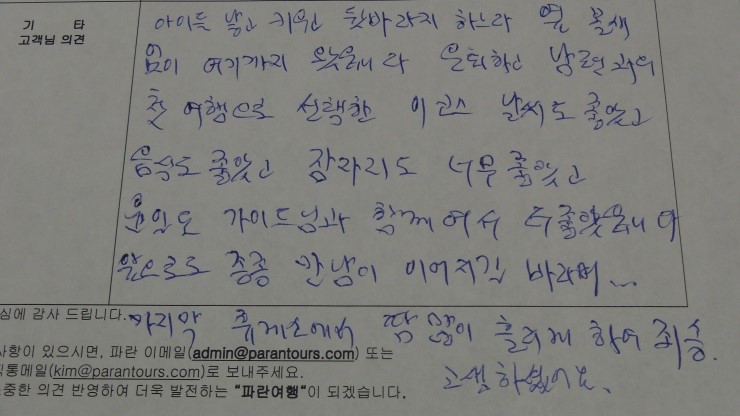 기 타
고객님 의견
아이들 낳고 키우고 뒷바라지 하느라 열 볼새
없이 여기까지 왔읍니다 은퇴하고 남편과의
첫 여행으로 선택한 이코스 날씨도 좋았고
음식도 좋았고 잠자리도 너무 좋았고
윤임도 가이드님과 함께여서 더좋았읍니다
앞으로도 종종 만남이 이어지길 바라며...
심에 감사 드립니다. 마지막 휴게소에서 땀 많이 흘리게 하여 죄송.
사항이 있으시면, 파란 이메일(admin@parantours.com) 또는
직통메일(kim@parantours.com)로 보내주세요. 고생하셨어요.
중한 의견 반영하여 더욱 발전하는 "파란여행"이 되겠습니다.